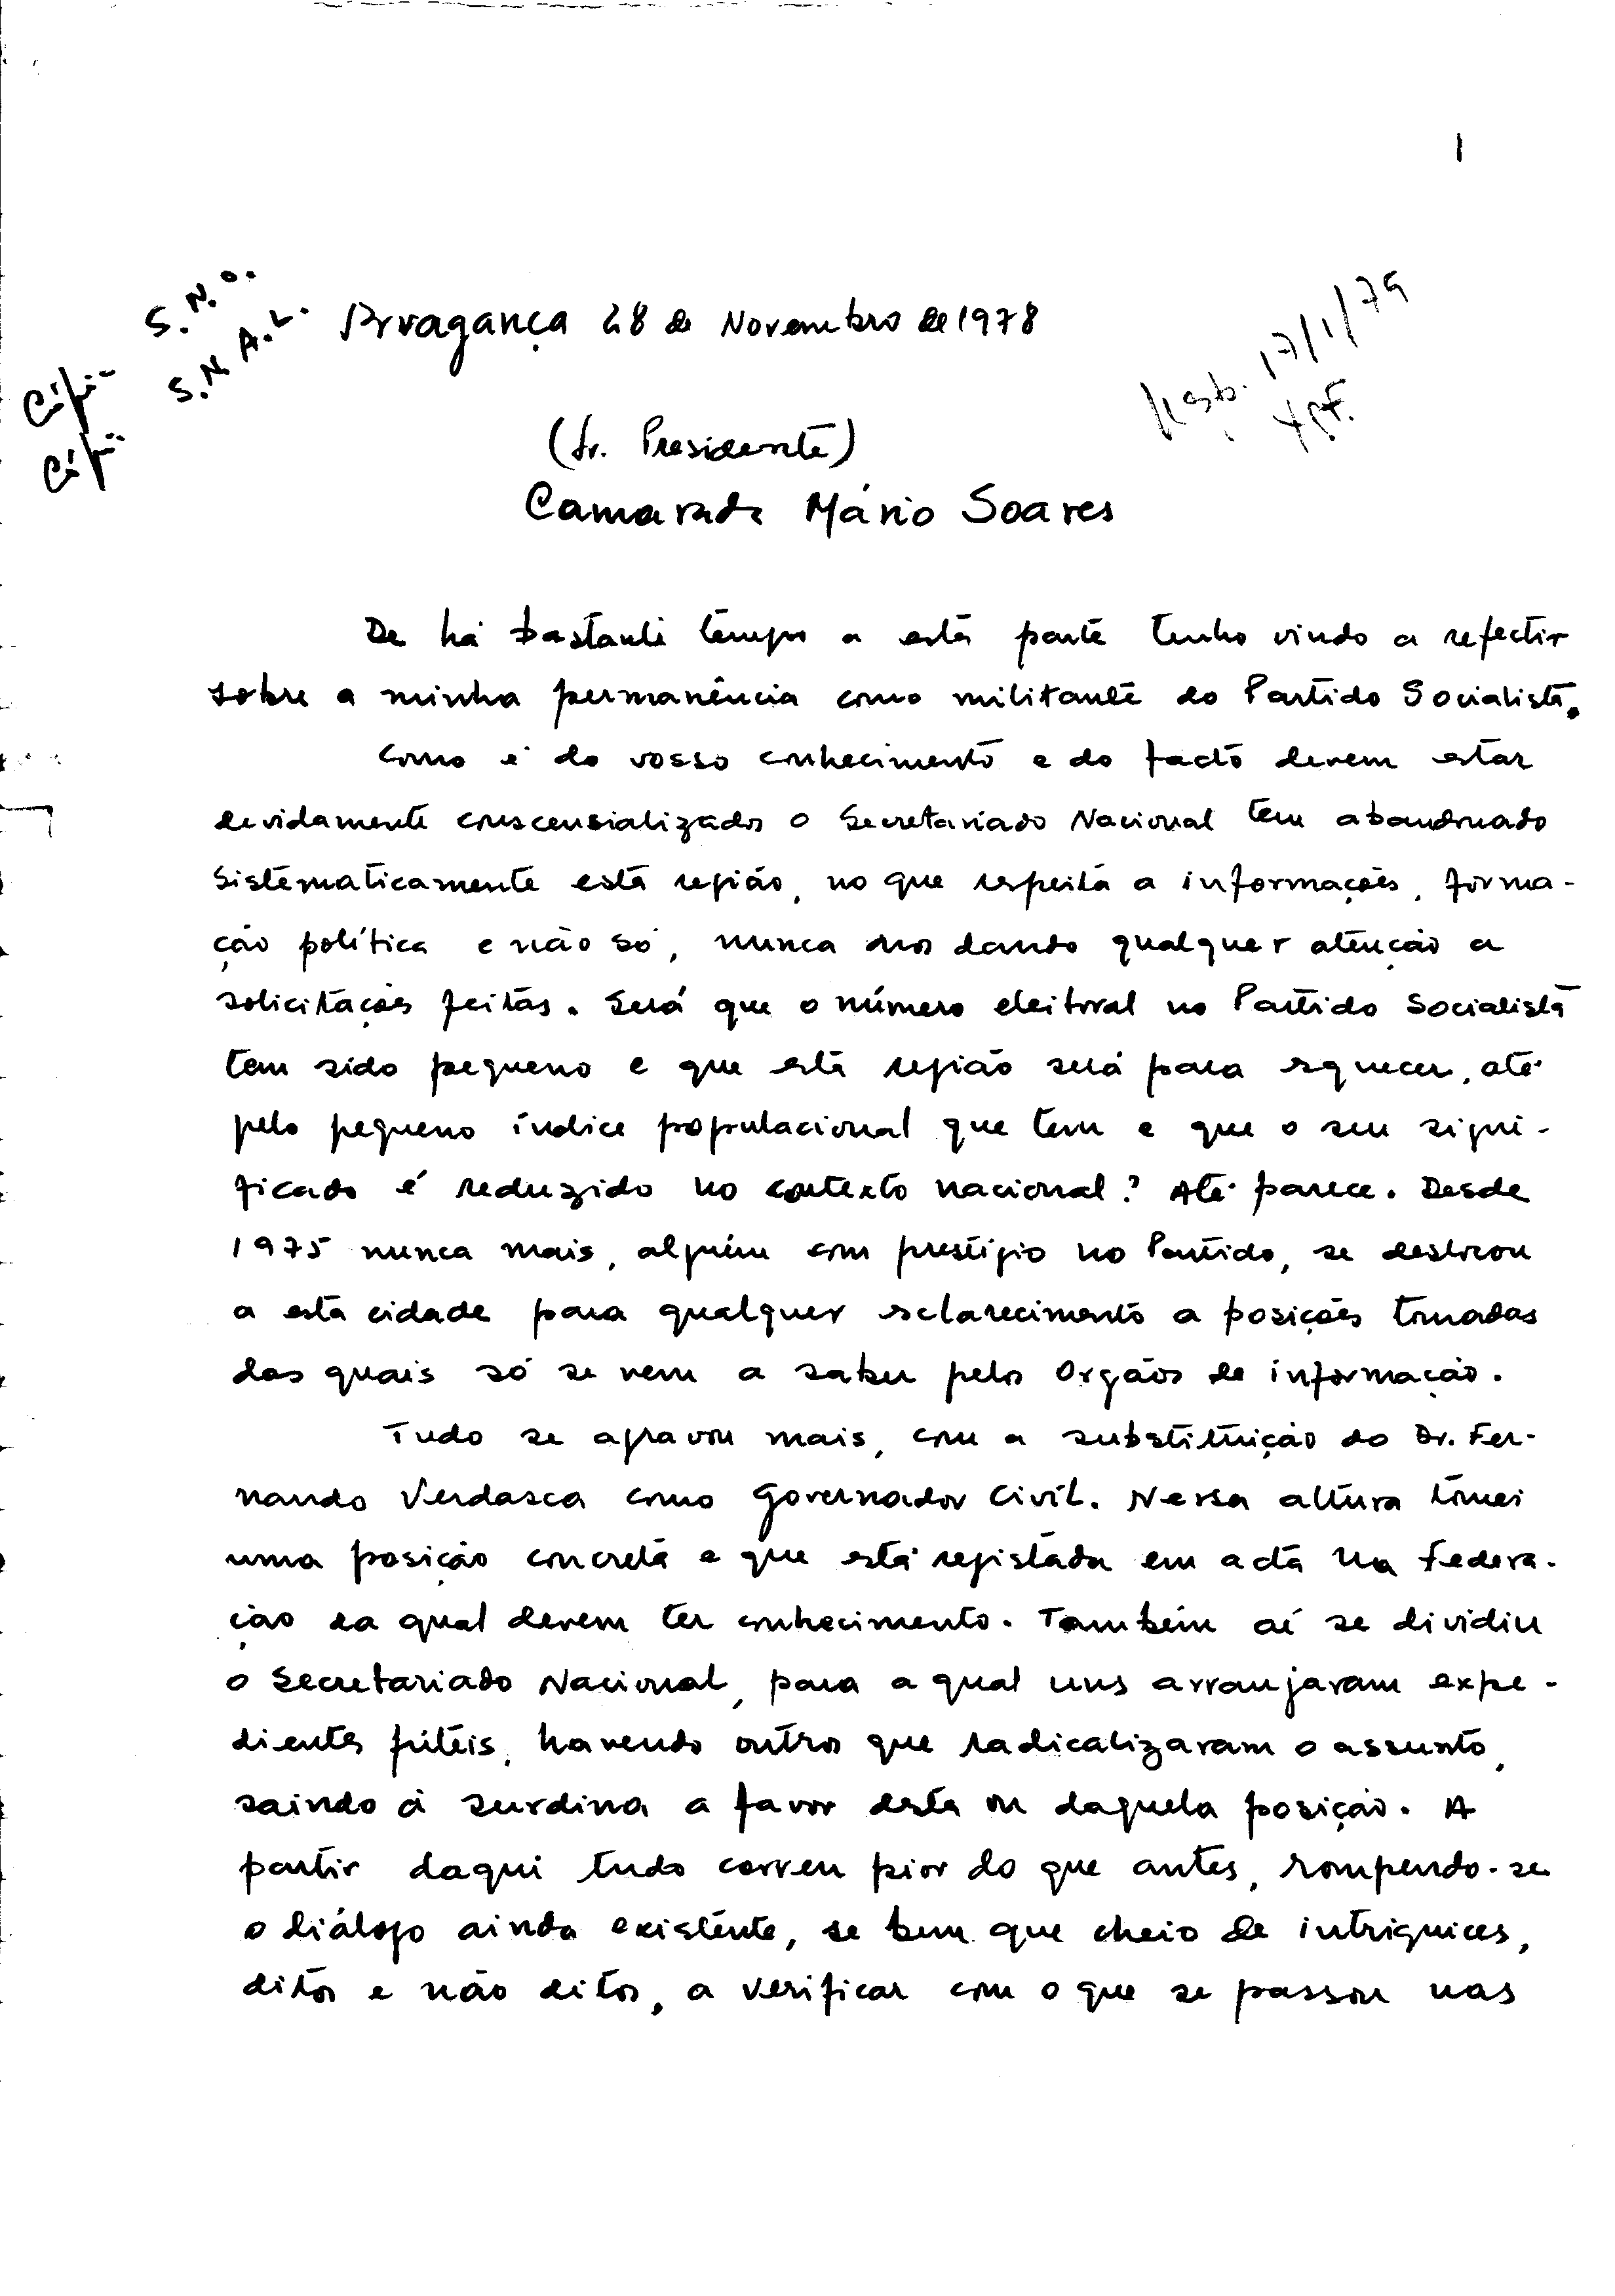 1
S.N.O.
S.N.A.L.
Cópia
Cópia
Bragança 28 de Novembro de 1978
17/1/79
(Sr. Presidente)
Camarada Mário Soares
De há bastante tempo a esta parte tenho vindo a refectir
sobre a minha permanência como militante do Partido Socialista.
Como é do vosso conhecimento e do facto devem estar
devidamente conscensializados o Secretariado Nacional tem abandonado
sistematicamente esta região, no que respeita a informações, forma-
ção política e não só, nunca nos dando qualquer atenção a
solicitações feitas. Será que o número eleitoral no Partido Socialista
tem sido pequeno e que esta região será para esquecer, até
pelo pequeno índice populacional que tem e que o seu signi-
ficado é reduzido no contexto nacional? Até parece. Desde
1975 nunca mais, alguém com prestígio no Partido, se deslocou
a esta cidade para qualquer esclarecimento a posições tomadas
das quais só se vem a saber pelos Orgãos de informação.
Tudo se agravou mais, com a substituição do Dr. Fer-
nando Verdasca como Governador Civil. Nessa altura tomei
uma posição concreta e que está registada em acta na Federa-
ção da qual devem ter conhecimento. Também aí se dividiu
o Secretariado Nacional, para a qual uns arranjaram expe-
dientes fúteis, havendo outros que radicalizaram o assunto,
saindo à surdina a favor desta ou daquela posição. A
partir daqui tudo correu pior do que antes, rompendo-se
o diálogo ainda existente, se bem que cheio de intriguices,
ditos e não ditos, a verificar com o que se passou nas